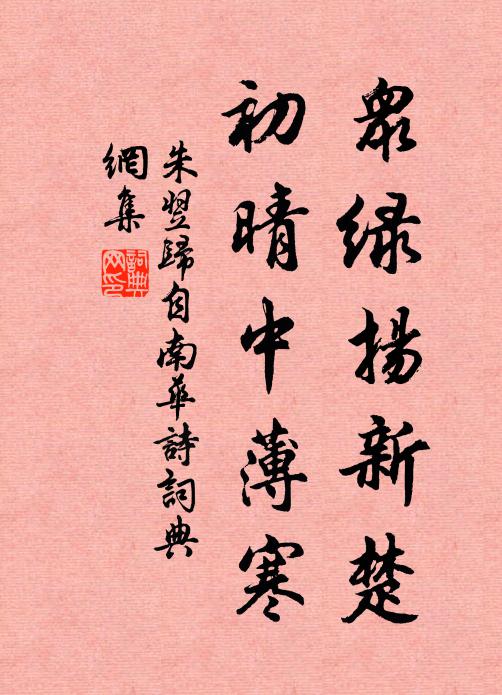 眾綠揚新楚
初晴中薄寒
朱翌歸自南華詩詞典
網集
詞典网印